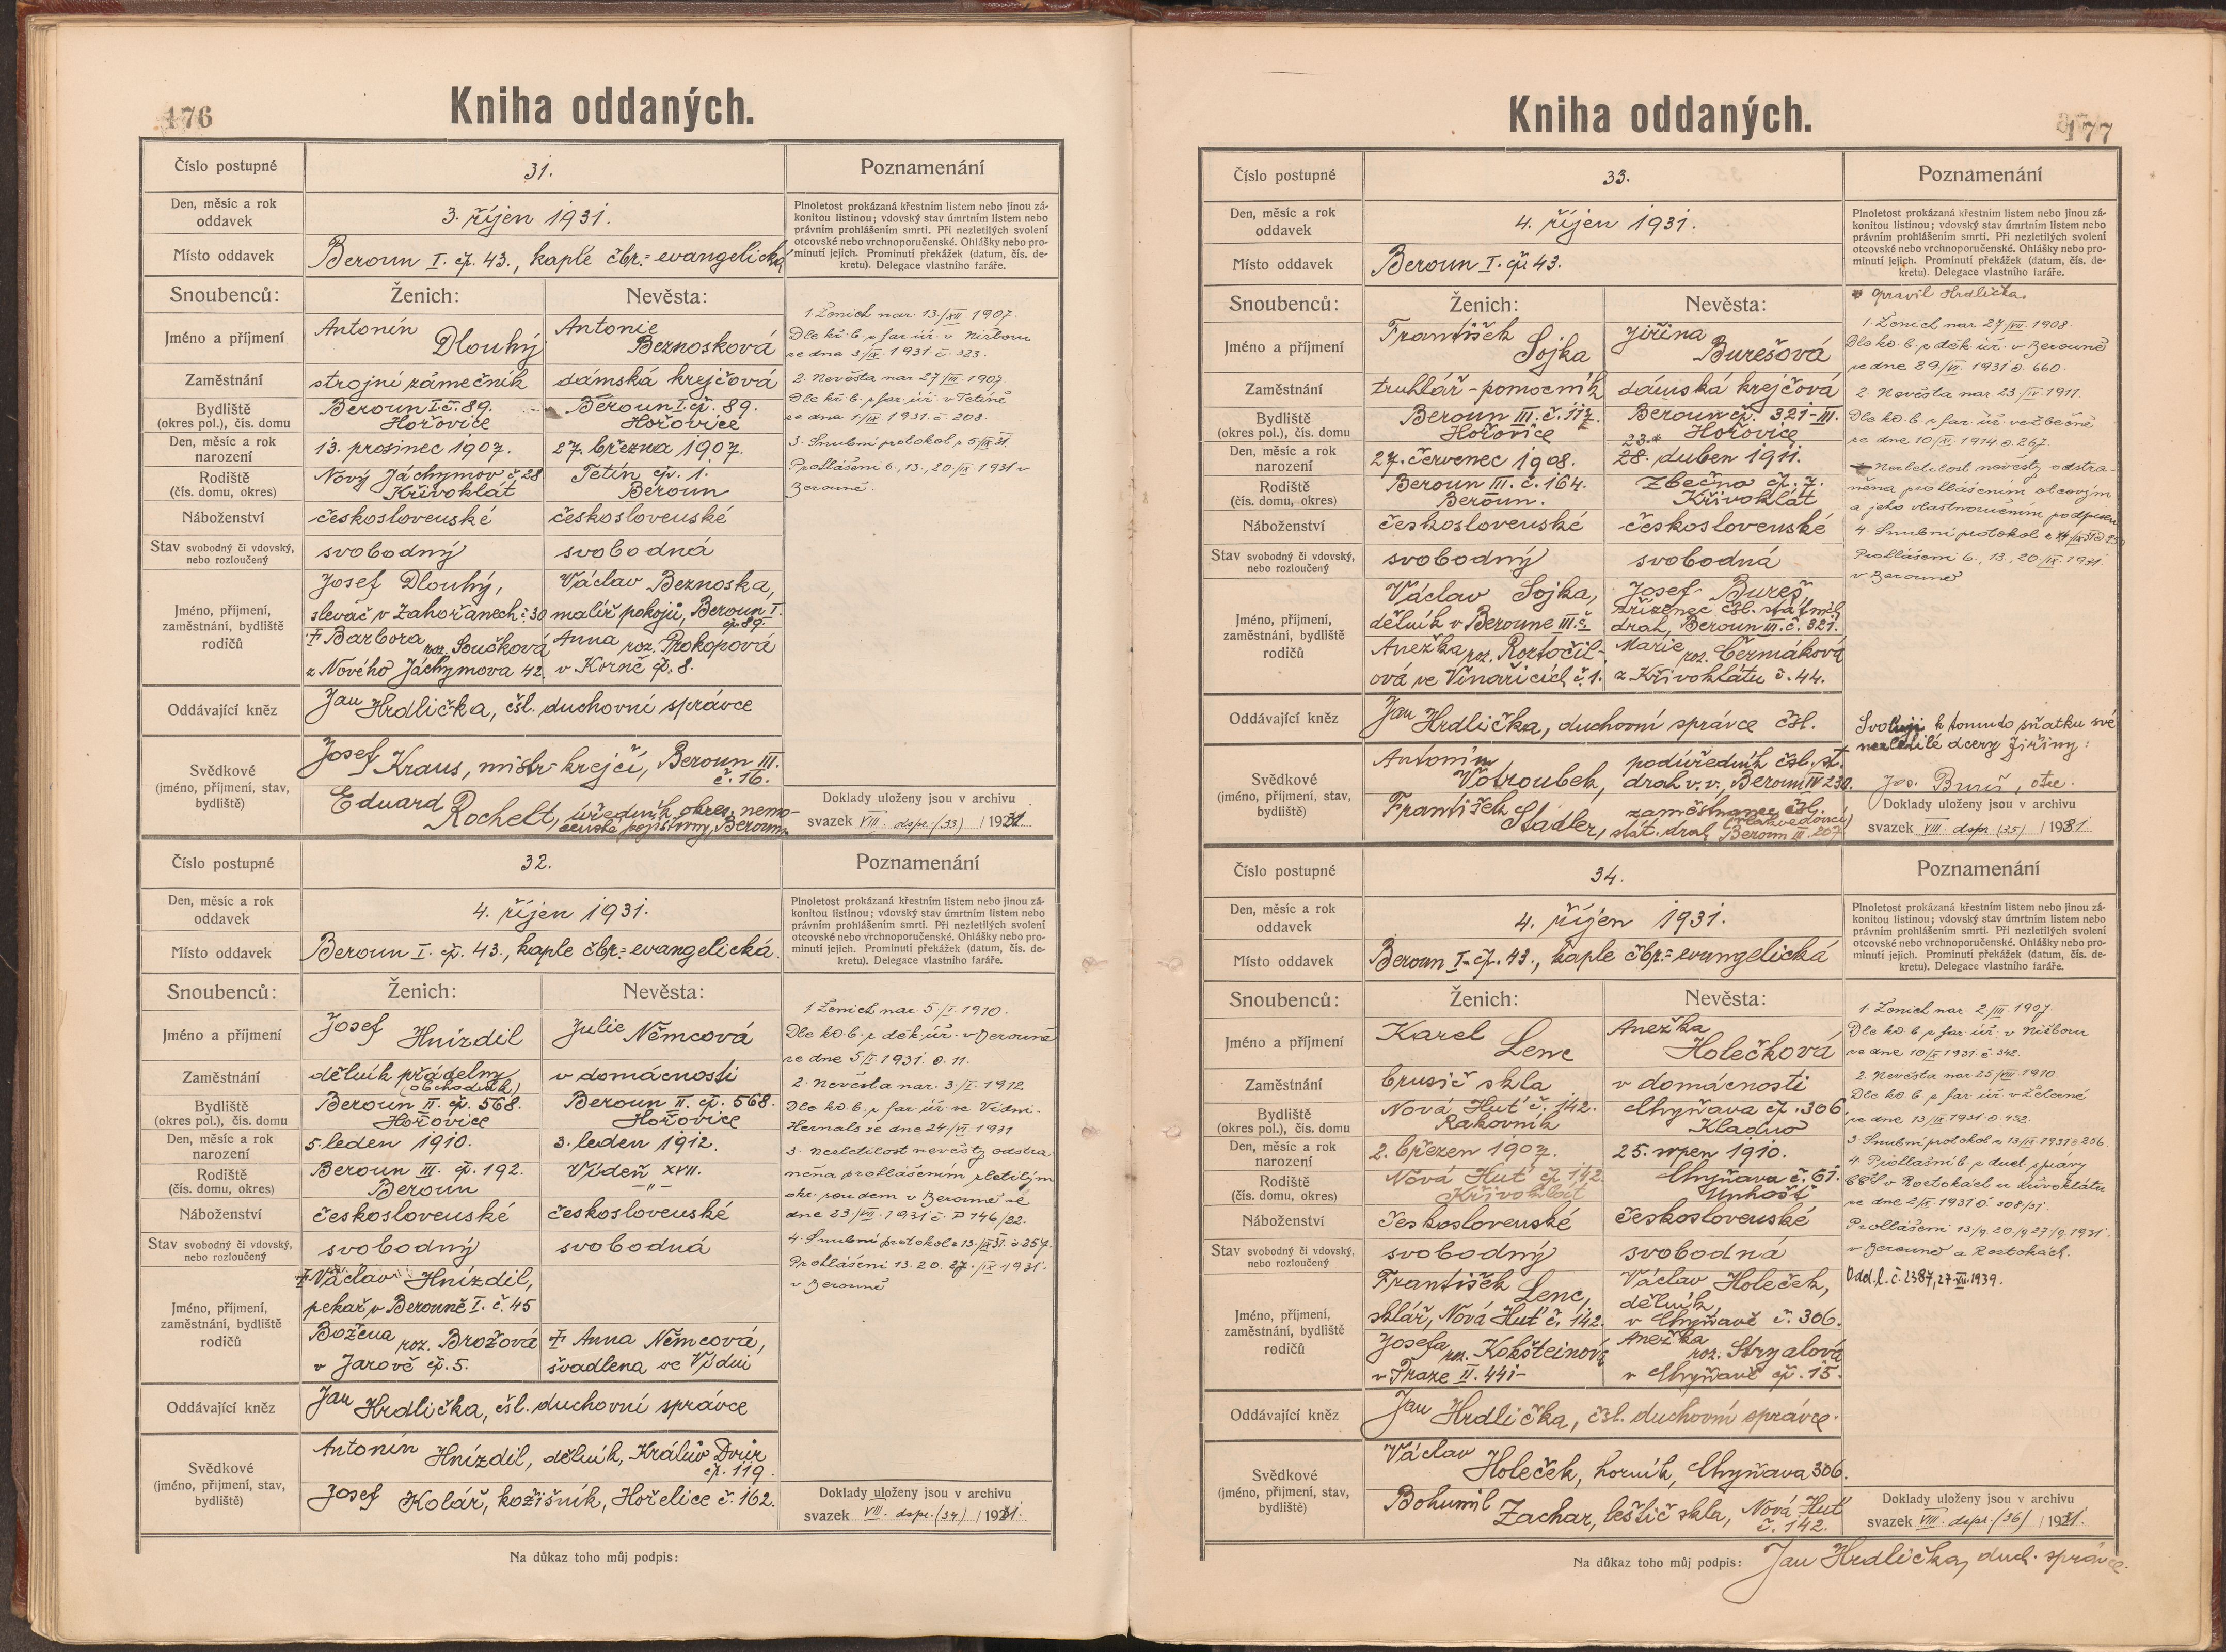 176
Kniha oddaných.
Číslo postupné
31.
Poznamenání
Den, měsíc a rok
oddavek
3. říjen 1931.
Plnoletost prokázaná křestním listem nebo jinou zá-
konitou listinou; vdovský stav úmrtním listem nebo
právním prohlášením smrti. Při nezletilých svolení
otcovské nebo vrchnoporučenské. Ohlášky nebo pro-
minutí jejich. Prominutí překážek (datum, čís. de-
kretu). Delegace vlastního faráře.
Místo oddavek
Beroun I. čp. 43., kaple čbr.-evangelická
Snoubenců:
Ženich:
Nevěsta:
Jméno a příjmení
Antonín
Dlouhý
Antonie
Beznosková
Zaměstnání
strojní zámečník
dámská krejčová
Bydliště
(okres pol.), čís. domu
Beroun I. č. 89.
Hořovice
Beroun I. čp. 89.
Hořovice
Den, měsíc a rok
narození
13. prosinec 1907.
27. března 1907.
Rodiště
(čís. domu, okres)
Nový Jáchymov č. 28
Křivoklát
Tetín čp. 1.
Beroun
Náboženství
československé
československé
Stav svobodný či vdovský,
nebo rozloučený
svobodný
svobodná
Jméno, příjmení,
zaměstnání, bydliště
rodičů
Josef Dlouhý,
slevač v Zahořanech č. 30
† Barbora roz. Součková
z Nového Jáchymova 42.
Václav Beznoska,
malíř pokojů, Beroun I.
čp. 89.
Anna roz. Prokopová
v Korně čp. 8.
Oddávající kněz
Jan Hrdlička, čsl. duchovní správce
Svědkové
(jméno, příjmení, stav,
bydliště)
Josef Kraus, mistr krejčí, Beroun III.
č. 16.
Eduard Rochelt, úředník okres. nemo-
censké pojišťovny, Beroun
1. Ženich nar. 13./XII. 1907.
Dle kř. l. z far. úř. v Nižboru
ze dne 3/IX. 1931 č. 323.
2. Nevěsta nar. 27/III. 1907.
Dle kř. l. z far. úř. v Tetíně
ze dne 1/IX. 1931. č. 208.
3. Snubní protokol z 5/IX 31
Prohlášení 6., 13., 20/IX 1931 v
Berouně.
Doklady uloženy jsou v archivu
svazek VIII. dspr. (33) / 1931.
Číslo postupné
32.
Poznamenání
Den, měsíc a rok
oddavek
4. říjen 1931.
Plnoletost prokázaná křestním listem nebo jinou zá-
konitou listinou; vdovský stav úmrtním listem nebo
právním prohlášením smrti. Při nezletilých svolení
otcovské nebo vrchnoporučenské. Ohlášky nebo pro-
minutí jejich. Prominutí překážek (datum, čís. de-
kretu). Delegace vlastního faráře.
Místo oddavek
Beroun I. čp. 43., kaple čbr.-evangelická.
Snoubenců:
Ženich:
Nevěsta:
Jméno a příjmení
Josef Hnízdil
Julie Němcová
Zaměstnání
dělník přádelny
(obchodník)
v domácnosti
Bydliště
(okres pol.), čís. domu
Beroun II. čp. 568.
Hořovice
Beroun II. čp. 568.
Hořovice
Den, měsíc a rok
narození
5. leden 1910.
3. leden 1912.
Rodiště
(čís. domu, okres)
Beroun III. čp. 192.
Beroun
Vídeň XVII.
—"—
Náboženství
československé
československé
Stav svobodný či vdovský,
nebo rozloučený
svobodný
svobodná
Jméno, příjmení,
zaměstnání, bydliště
rodičů
† Václav Hnízdil,
pekař v Berouně I. č. 45
Božena roz. Brožová
v Jarově čp. 5.
† Anna Němcová,
švadlena ve Vídni
Oddávající kněz
Jan Hrdlička, čsl. duchovní správce
Svědkové
(jméno, příjmení, stav,
bydliště)
Antonín Hnízdil, dělník, Králův Dvůr
čp. 119.
Josef Kolář, kožišník, Hořelice č. 162.
1. Ženich nar. 5./I. 1910.
Dle kř. l. z děk. úř. v Berouně
ze dne 5/I. 1931. č. 11.
2. Nevěsta nar. 3/I. 1912
Dle kř. l. z far. úř. ve Vídni-
Hernals ze dne 24/VI. 1931
3. Nezletilost nevěsty odstra
něna prohlášením zletilým
okr. soudem v Berouně ze
dne 23/VII. 1931 č. P 146/22.
4. Snubní protokol z 13./IX 31. č. 257.
Prohlášení 13. 20. 27./IX 1931.
v Berouně
Doklady uloženy jsou v archivu
svazek VIII. dspr. (34) / 1931.
Na důkaz toho můj podpis:
177
Kniha oddaných.
Číslo postupné
33.
Poznamenání
Den, měsíc a rok
oddavek
4. říjen 1931.
Plnoletost prokázaná křestním listem nebo jinou zá-
konitou listinou; vdovský stav úmrtním listem nebo
právním prohlášením smrti. Při nezletilých svolení
otcovské nebo vrchnoporučenské. Ohlášky nebo pro-
minutí jejich. Prominutí překážek (datum, čís. de-
kretu). Delegace vlastního faráře.
Místo oddavek
Beroun I. čp. 43.
Snoubenců:
Ženich:
Nevěsta:
Jméno a příjmení
František
Sojka
Jiřina
Burešová
Zaměstnání
truhlář-pomocník
dámská krejčová
Bydliště
(okres pol.), čís. domu
Beroun III. č. 117.
Hořovice
Beroun čp. 321-III.
Hořovice
Den, měsíc a rok
narození
27. červenec 1908.
23.*
28. duben 1911.
Rodiště
(čís. domu, okres)
Beroun III. č. 164.
Beroun.
Zbečno čp. 7.
Křivoklát
Náboženství
československé
československé
Stav svobodný či vdovský,
nebo rozloučený
svobodný
svobodná
Jméno, příjmení,
zaměstnání, bydliště
rodičů
Václav Sojka,
dělník v Berouně III. č.
Anežka roz. Roztočil-
ová ve Vinařicích č. 1.
Josef Bureš
zřízenec čsl. státních
drah, Beroun III. č. 321.
Marie roz. Čermáková
z Křivoklátu č. 44.
Oddávající kněz
Jan Hrdlička, duchovní správce čsl.
Svědkové
(jméno, příjmení, stav,
bydliště)
Antonín podúředník čsl. st.
Votroubek, drah v. v., Beroun IV 230.
František zaměstnanec čsl.
Stadler, stát. drah (vlakvedoucí) Beroun III. 207
* opravil Hrdlička.
1. Ženich nar. 27/VII. 1908.
Dle kř. l. z děk. úř. v Berouně
ze dne 29/VI. 1931 č. 660.
2. Nevěsta nar. 23/IV. 1911.
Dle kř. l. z far. úř. ve Zbečně
ze dne 10/XI. 1914 č. 267.
Nezletilost nevěsty odstra-
něna prohlášením otcovým
a jeho vlastnoručním podpisem
4. Snubní protokol
Prohlášení 6., 13., 20/IX. 1931
v Berouně
Svoluji k tomuto sňatku své
nezletilé dcery Jiřiny:
Jos. Bureš, otec.
Doklady uloženy jsou v archivu
svazek VIII. dspr. (35) / 1931.
Číslo postupné
34.
Poznamenání
Den, měsíc a rok
oddavek
4. říjen 1931.
Plnoletost prokázaná křestním listem nebo jinou zá-
konitou listinou; vdovský stav úmrtním listem nebo
právním prohlášením smrti. Při nezletilých svolení
otcovské nebo vrchnoporučenské. Ohlášky nebo pro-
minutí jejich. Prominutí překážek (datum, čís. de-
kretu). Delegace vlastního faráře.
Místo oddavek
Beroun I. čp. 43., kaple čbr.-evangelická
Snoubenců:
Ženich:
Nevěsta:
Jméno a příjmení
Karel
Lenc
Anežka
Holečková
Zaměstnání
brusič skla
v domácnosti
Bydliště
(okres pol.), čís. domu
Nová Huť č. 142.
Rakovník
Chyňava čp. 306.
Kladno
Den, měsíc a rok
narození
2. březen 1907.
25. srpen 1910.
Rodiště
(čís. domu, okres)
Nová Huť čp. 142.
Křivoklát
Chyňava č. 61.
Unhošť
Náboženství
československé
československé
Stav svobodný či vdovský,
nebo rozloučený
svobodný
svobodná
Jméno, příjmení,
zaměstnání, bydliště
rodičů
František Lenc,
sklář, Nová Huť č. 142.
Josefa roz. Kokšteinová
v Praze II. 441-
Václav Holeček,
dělník,
v Chyňavě č. 306.
Anežka roz. Stryalová
v Chyňavě čp. 15.
Oddávající kněz
Jan Hrdlička, čsl. duchovní správce.
Svědkové
(jméno, příjmení, stav,
bydliště)
Václav Holeček, horník, Chyňava 306.
Bohumil Zachar, leštič skla, Nová Huť
č. 142.
1. Ženich nar. 2./III. 1907.
Dle kř. l. z far. úř. v Nižboru
ze dne 10/X. 1931. č. 342.
2. Nevěsta nar 25/VIII 1910.
Dle kř. l. z far. úř. v Železné
ze dne 13/IX 1931 č. 452.
3. Snubní protokol z 13/IX 1931 č. 256.
4. Prohlášení z duch. správy
CČS v Roztokách u Křivoklátu
ze dne 2/X. 1931 č. 308/31.
Prohlášení 13/9. 20/9 27/9. 1931.
v Berouně a Roztokách.
Odd. l. č. 2387, 27. XII. 1939.
Doklady uloženy jsou v archivu
svazek VIII. dspr. (36) / 1931.
Na důkaz toho můj podpis: Jan Hrdlička, duch. správce.